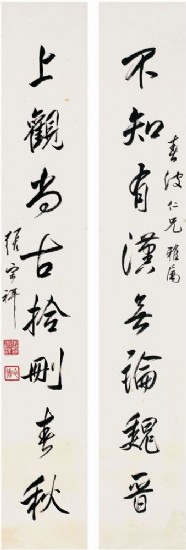 不知有漢無論魏晉
春波仁兄雅属
上觀尚古拾刪春秋
張宗祥